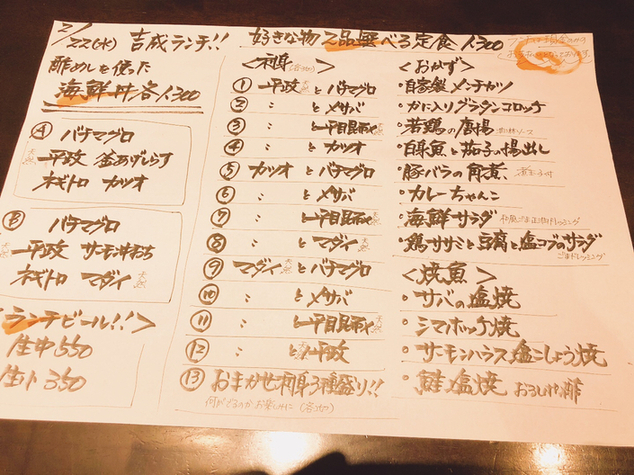 2/22(水) 吉成ランチ!!
酢めしを使った
海鮮丼各1300
A バチマグロ
平政 釜あげしらす
ネギトロ カツオ
B バチマグロ
平政 サーモン
ネギトロ マダイ
ランチビール!!
生中 550
生小 350
好きな物2品選べる定食 1300
<刺身>
① 平政 と バチマグロ
② 〃 と 〆サバ
③ 〃 と 平目昆布〆
④ 〃 と カツオ
⑤ カツオ と バチマグロ
⑥ 〃 と 〆サバ
⑦ 〃 と 平目昆布〆
⑧ 〃 と マダイ
⑨ マダイ と バチマグロ
⑩ 〃 と 〆サバ
⑪ 〃 と 平目昆布〆
⑫ 〃 と 平政
⑬ おまかせ刺身3種盛り!!
何がでるのかお楽しみに
<おかず>
・自家製メンチカツ
・かに入りグラタンコロッケ
・若鶏の唐揚
・白身魚と茄子の揚出し
・豚バラの角煮
・カレーちゃんこ
・海鮮サラダ
・鶏ササミと豆腐と塩コブのサラダ
ごまドレッシング
<焼魚>
・サバの塩焼
・シマホッケ焼
・サーモンハラス塩こしょう焼
・鮭塩焼 おろしポン酢